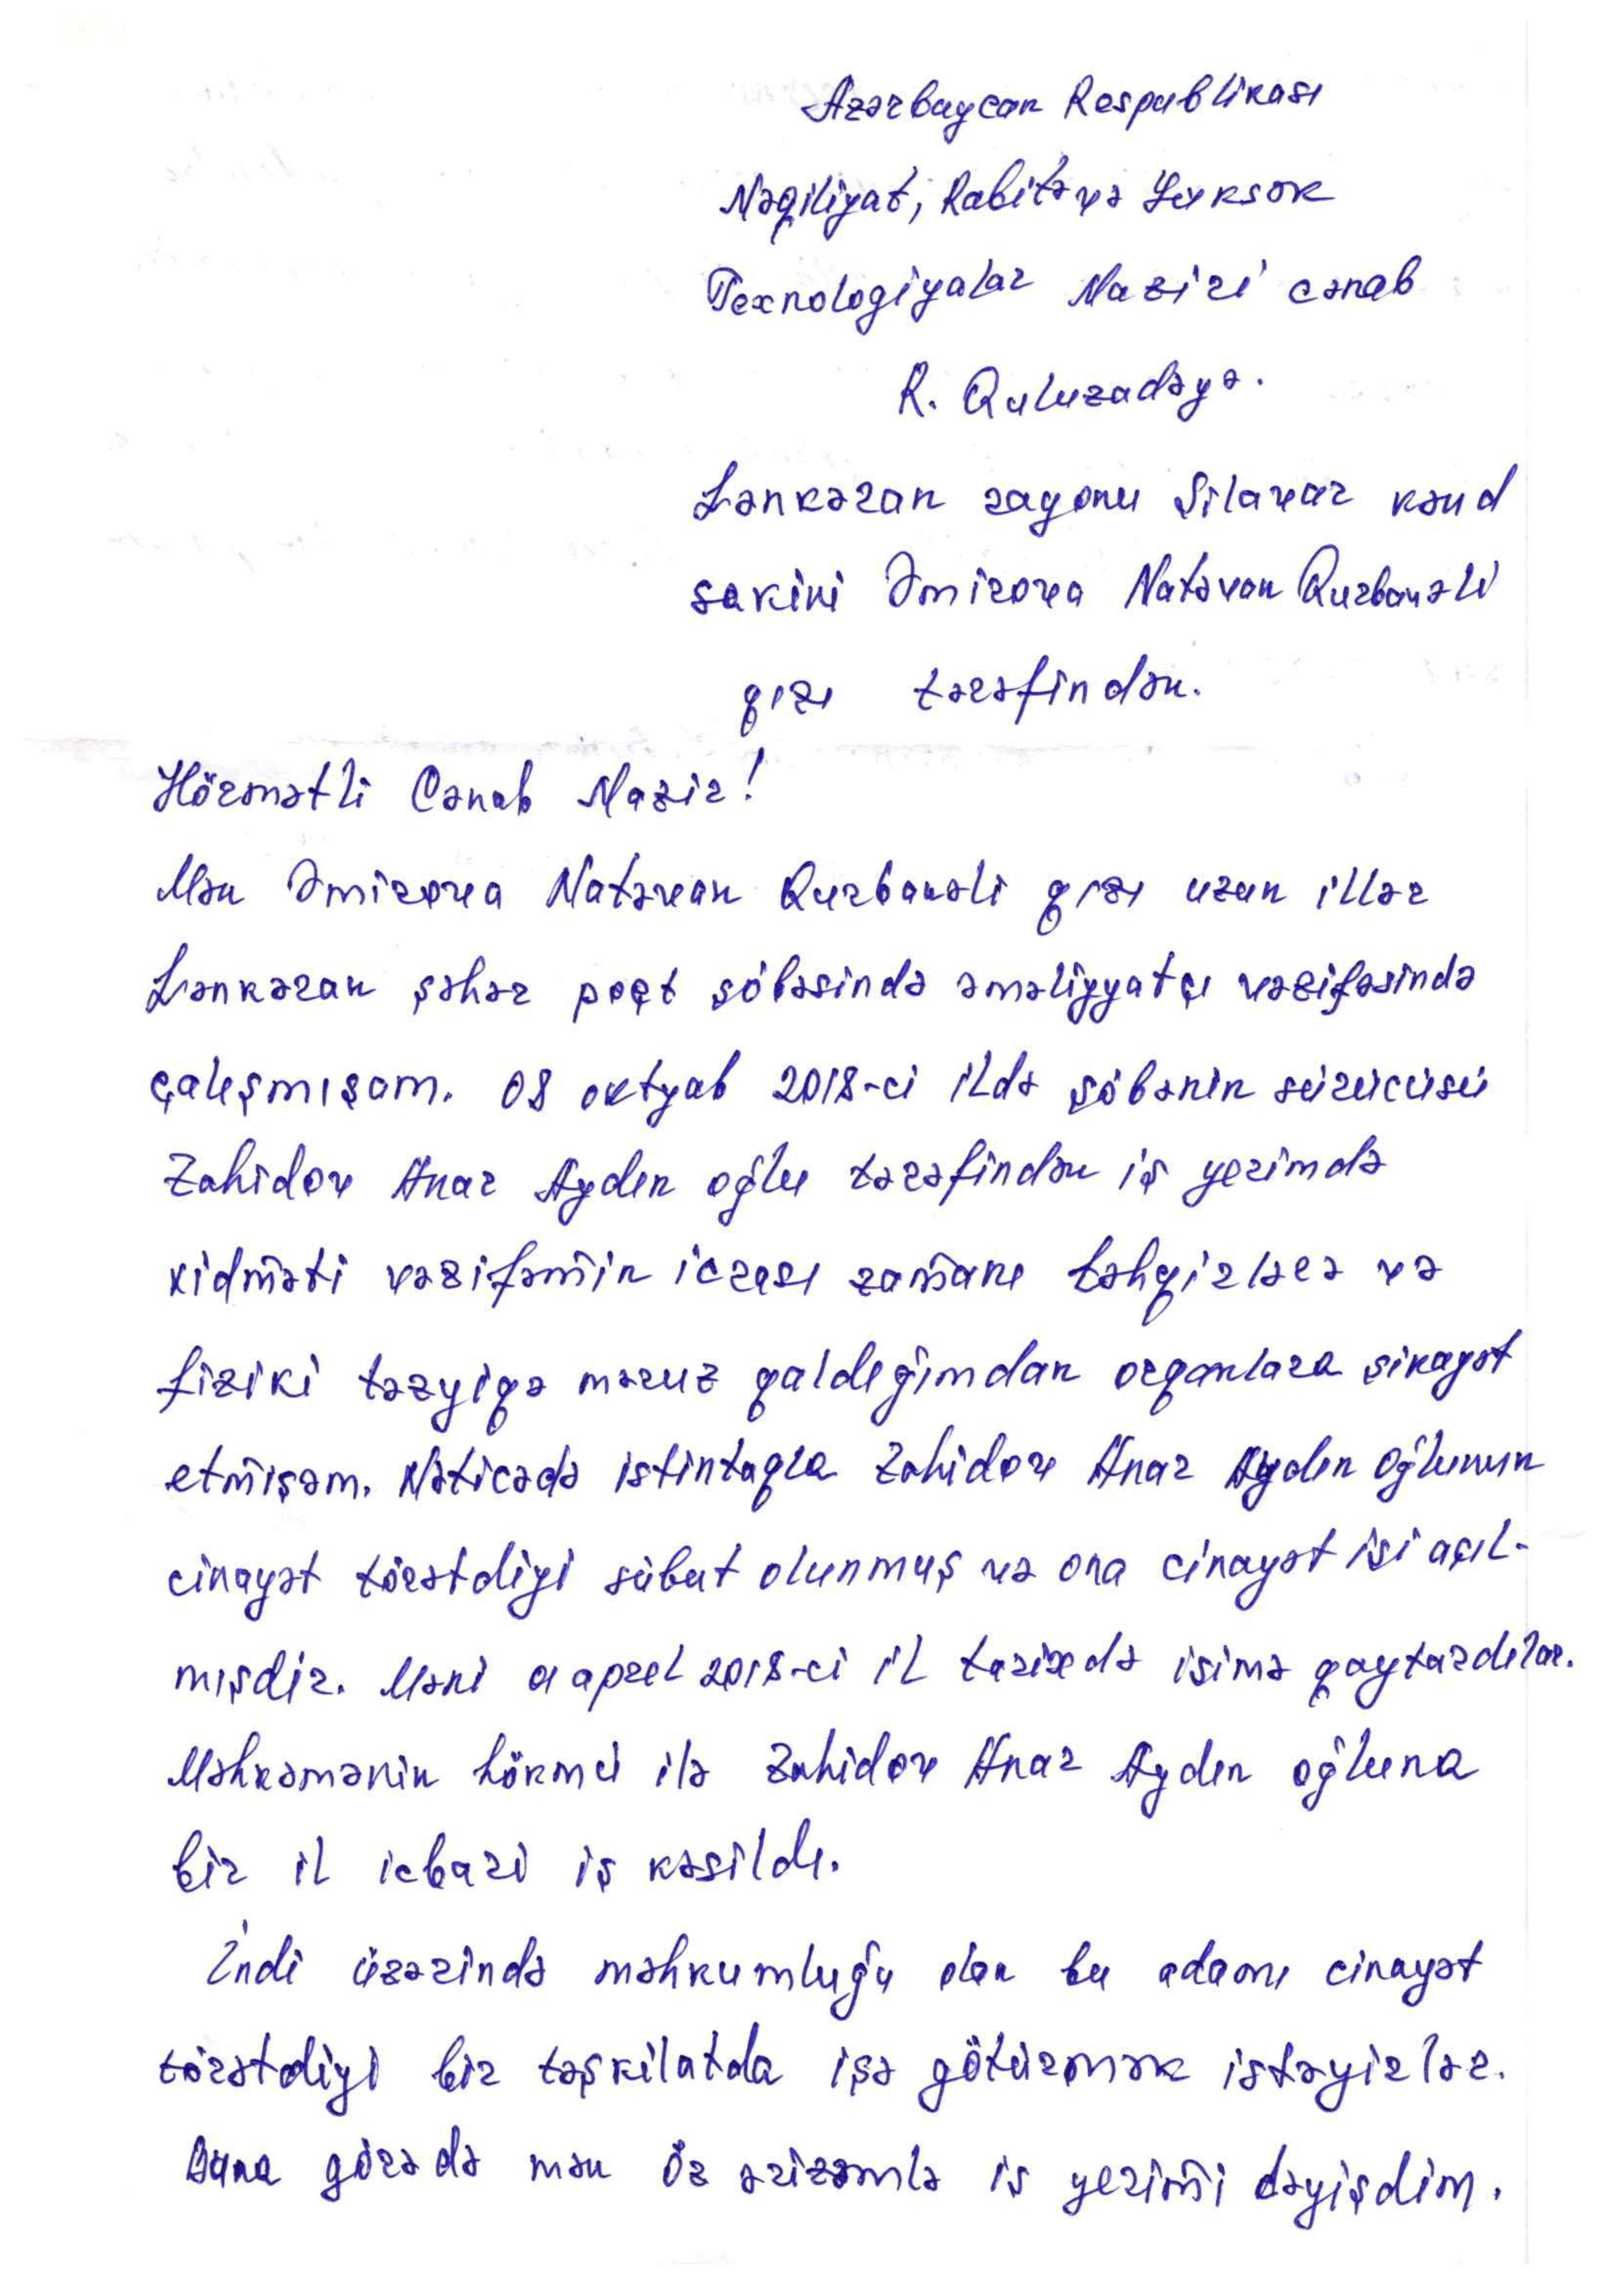 Azərbaycan Respublikası
Nəqiliyat, Rabitə və Yüksək
Texnologiyalar Naziri cənab
R. Quluzadəyə.
Lənkəran rayonu Şilavar kənd
sakini Əmirova Natəvan Qurbanəli
qızı tərəfindən.
Hörmətli Cənab Nazir!
Mən Əmirova Natəvan Qurbanəli qızı uzun illər
Lənkəran şəhər poçt şöbəsində əməliyyatçı vəzifəsində
çalışmışam. 08 oktyab 2018-ci ildə şöbənin sürücüsü
Zahidov Anar Aydın oğlu tərəfindən iş yerimdə
xidməti vəzifəmin icrası zamanı təhqirlərə və
fiziki təzyiqə məruz qaldığımdan orqanlara şikayət
etmişəm. Nəticədə istintaqla Zahidov Anar Aydın oğlunun
cinayət törətdiyi sübut olunmuş və ona cinayət işi açıl-
mışdir. Məni 01 aprel 2018-ci il tarixdə işimə qaytardılar.
Məhkəmənin hökmü ilə Zahidov Anar Aydın oğluna
bir il icbari iş kəsildi.
İndi üzərində məhkumluğu olan bu adamı cinayət
törətdiyi bir təşkilatda işə götürmək istəyirlər.
Buna görədə mən öz ərizəmlə iş yerimi dəyişdim.